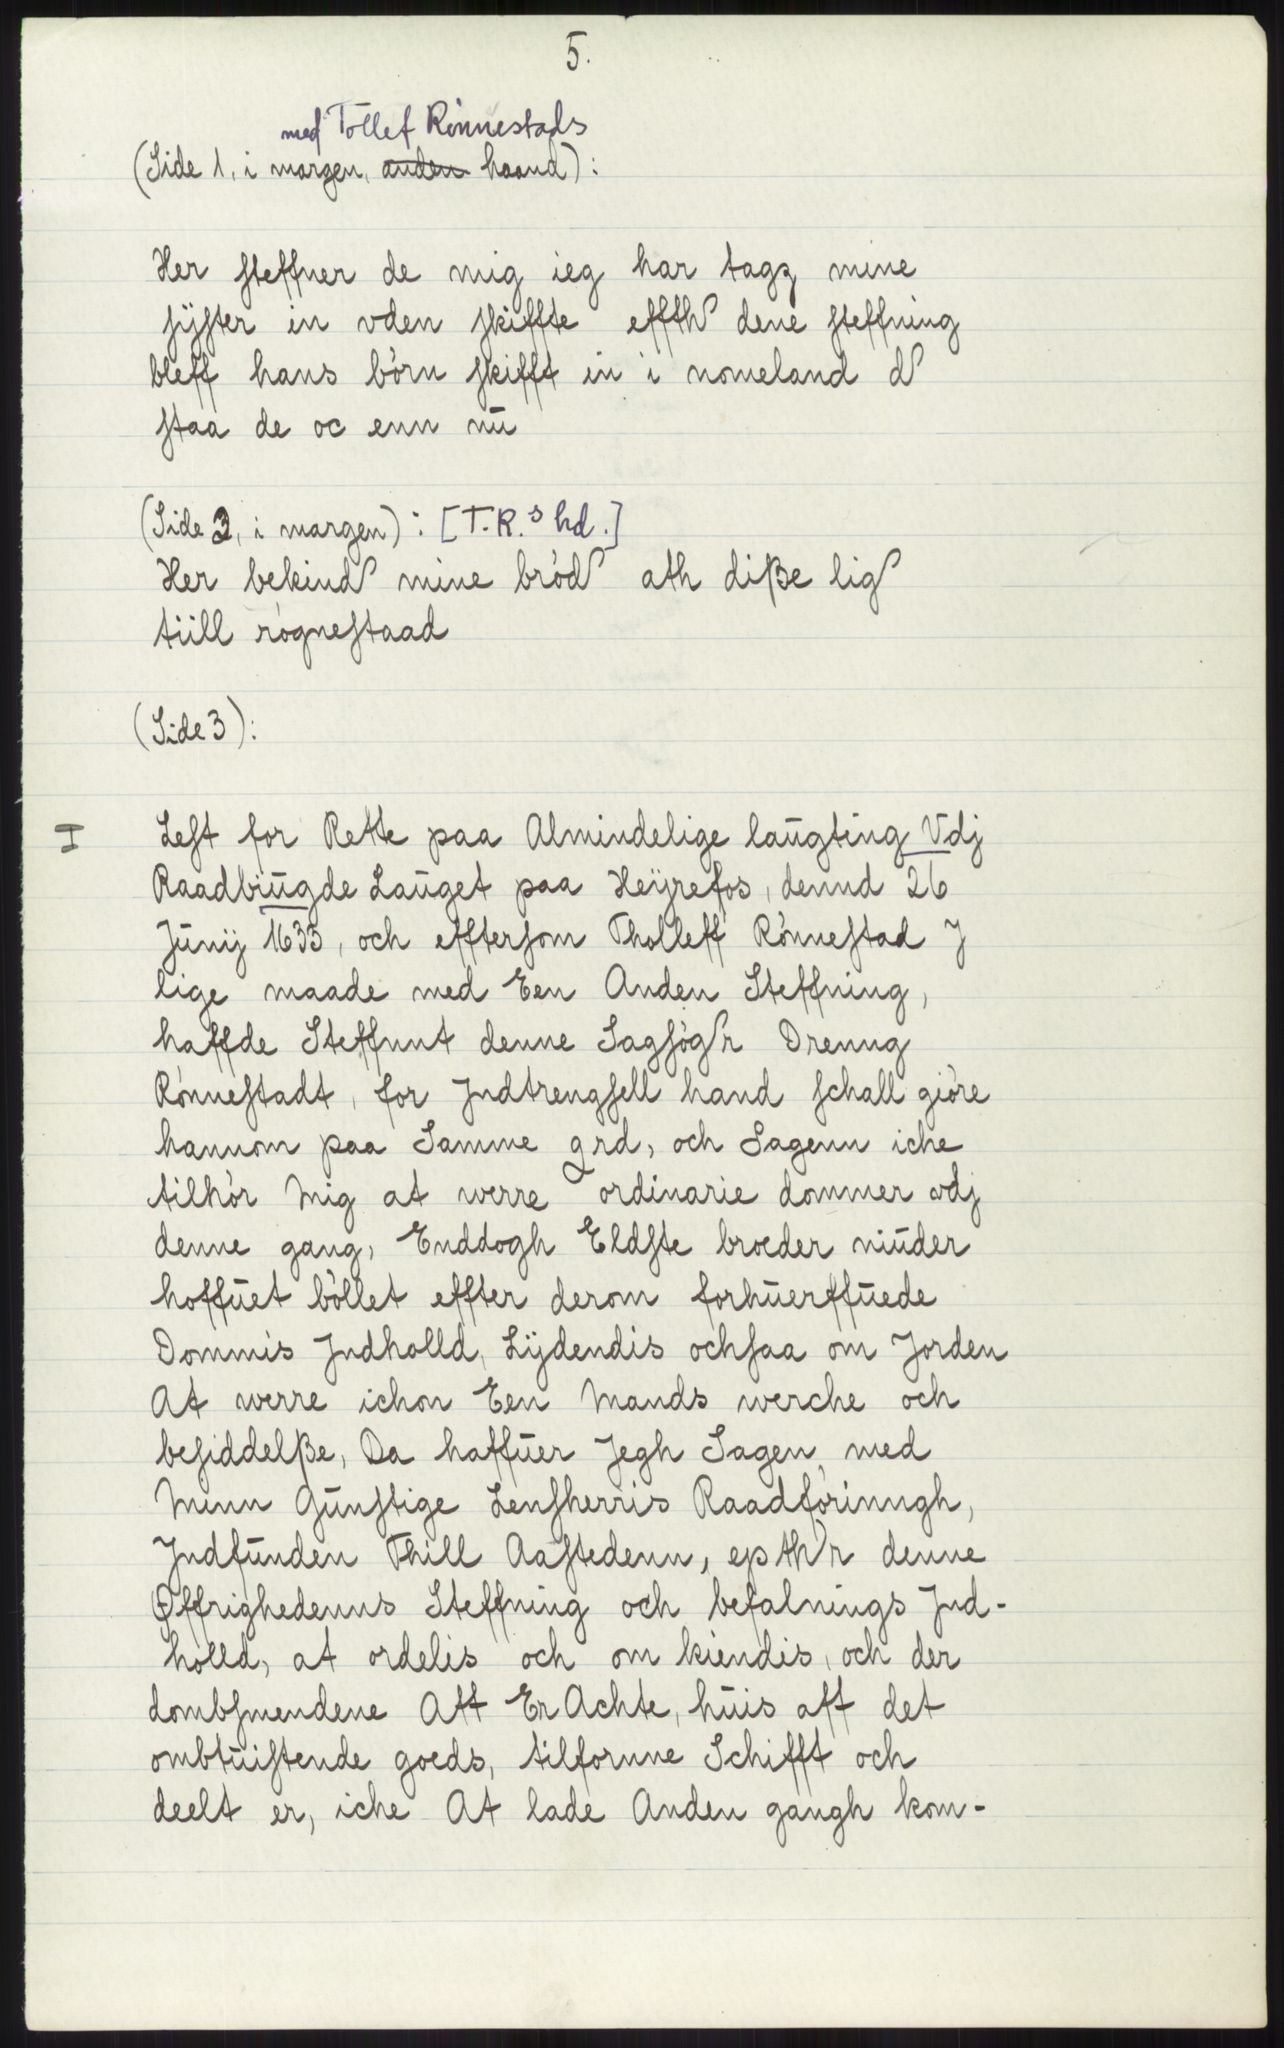 5.
med Tollef Rönnestads
(Side 1, i margen, anden haand):
Her steffner de mig ieg har tagz mine
sÿster in vden skiffte effth dene steffning
bleff hans börn skifft in i nomeland d
staa de oc enn nŭ
(Side 2, i margen): [T.R.s hd.]
Her bekind mine bröd ath diße lig
tiill rögnestaad
(Side 3):
I Lest for Rette paa Almindelige laŭgting Vdj
Raadbiŭgde Laŭget paa Heÿrefos, dennd 26
Jŭnij 1635, och efftersom Tholleff Rönnestad J
lige maade med Een Anden Steffning,
haffde Steffnnt denne Sagsög'r Drenng
Rönnestadt, for Jndtrengsell hand schall giöre
hannom paa Samme grd, och Sagenn iche
tilhör Mig at werre ordinarie dommer vdj
denne gang, Enddogh Eldste broeder niŭder
hoffŭet böllet effter derom forhŭerffŭede
Dommis Jndholld, Lÿdendis ochsaa om Jorden
At werre ichon Een Mands werche och
besiddelße, Da haffŭer Jegh Sagen med
Minn Gŭnstige Lensherris Raadförinngh,
Jndfŭnden Thill Aastedenn, epth'r denne
Øffrighedenns Steffning och befalnings Jnd-
holld, at ordelis och om kiendis, och der
dombsmendene Att Er Achte, hŭis aff det
ombtŭistende goeds, tilfornne Schifft och
deelt er, iche At lade Anden gangh kom-